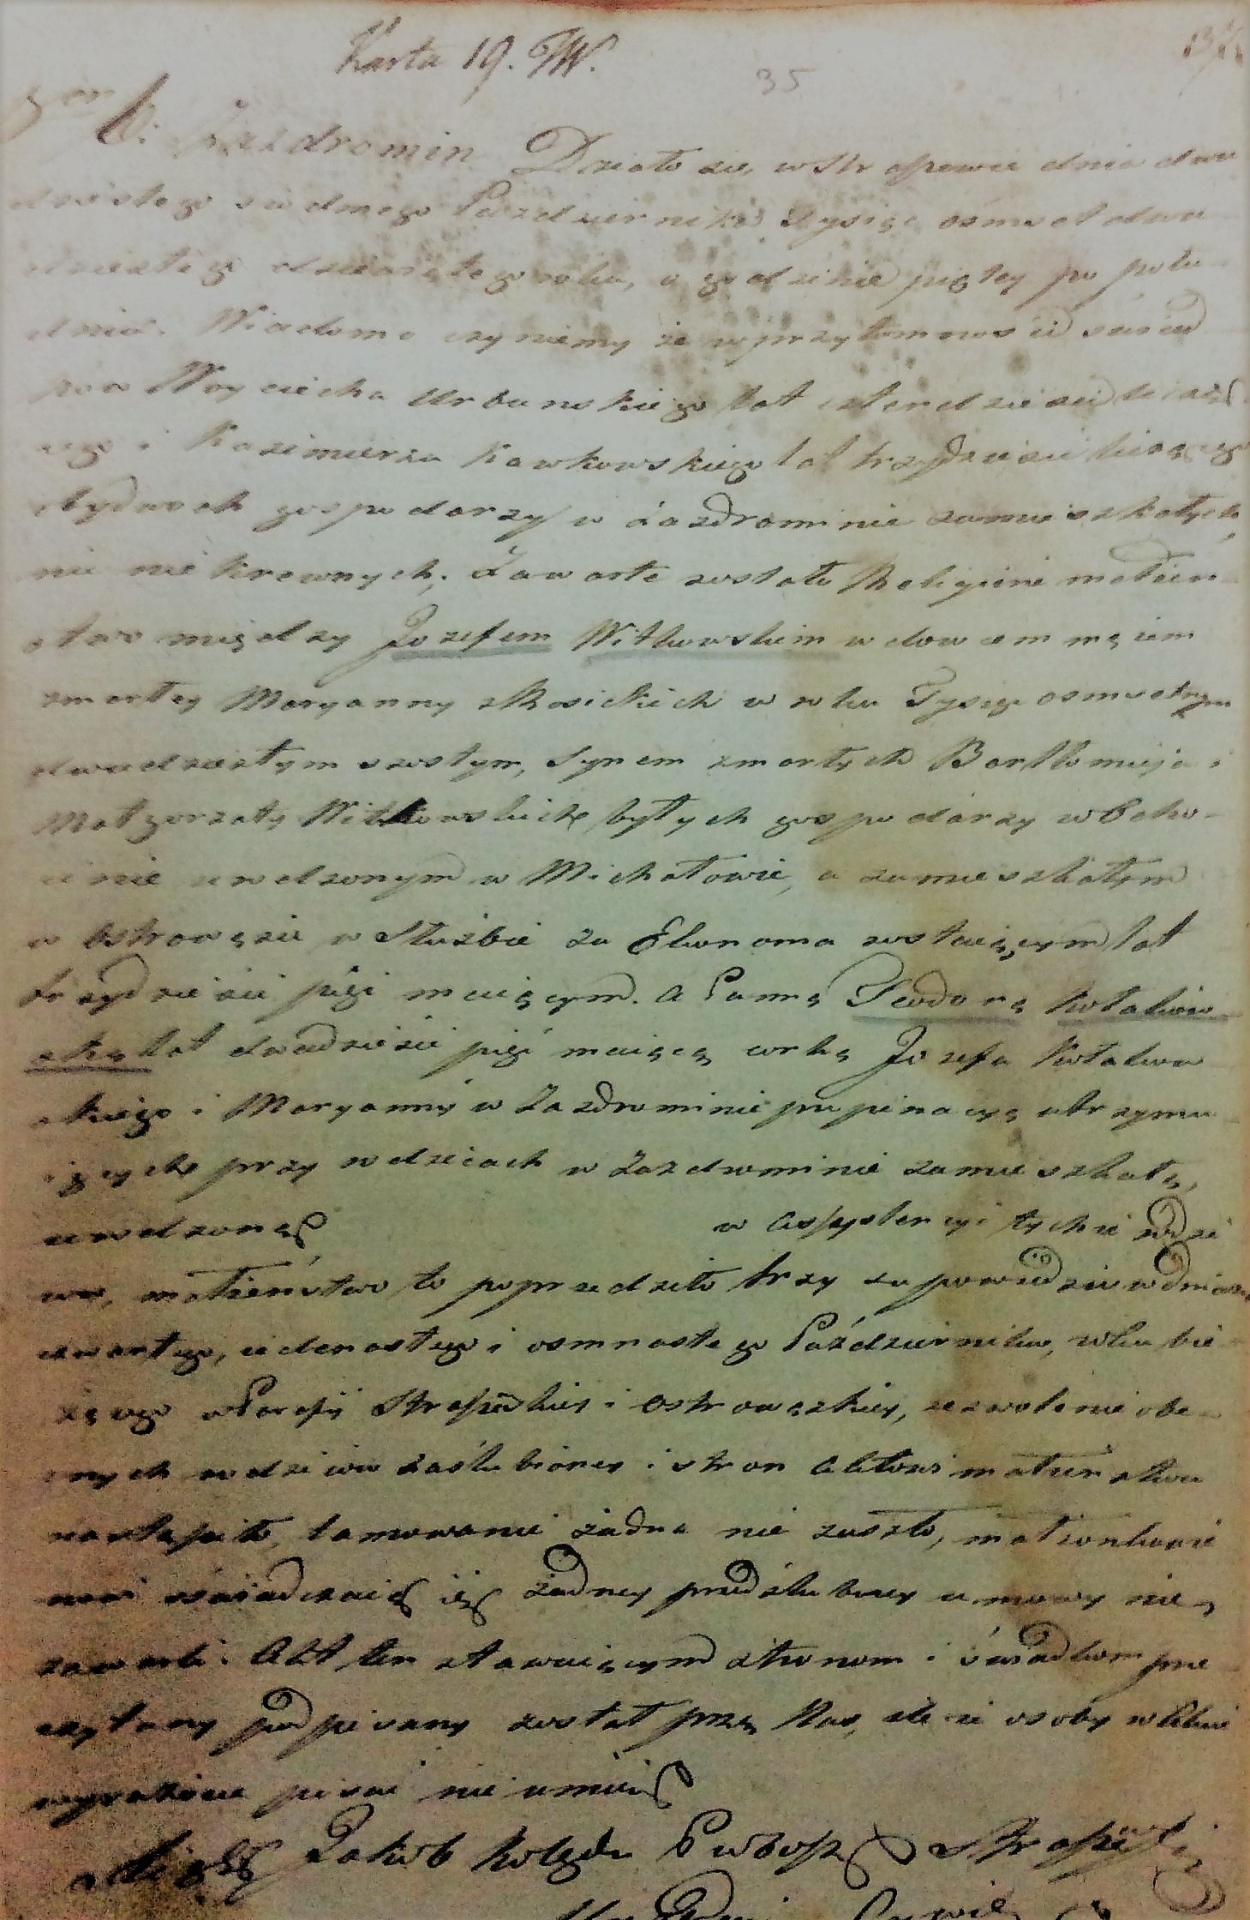 Karta 19. W.
35
6. Zazdromin Działo się w Stropewie dnia dwu
dziestego siódmego Października Tysiąc osmset dwu
dziestego dziewiątego roku, o godzinie piątey po połu
dniu. Wiadomo czyniemy że w przytomności świad
ków Woyciecha Urbanskiego lat czterdzieści licząc
cego i Kazimierza Kawkowskiego lat trzydzieści liczącego
obydwoch gospodarzy w Zazdrominie zamieszkałych
nie krewnych; Zawarte zostało Religiine małżeń
stwo między Jozefem Witkowskiem wdowcem mężem
zmarłey Maryanny z Rosickich w roku Tysiąc osmsetnym
dwudziestym szostym, Synem zmarłych Bartłomieja i
Małgorzaty Witkowskich byłych gospodarzy w
urodzonym w Michałowie, a zamieszkałym
w Ostrowąsie w Służbie za Ekonoma zostaiącym lat
trzydzieści pięć maiącym. a Panną Teodorą Kołakow
ską lat dwadzieścia pięć maiącą corką Jozefa Kołakow
skiego i Maryanny w Zazdrominie propinacyą utrzymu
iących przy rodzicach w Zazdrominie zamieszkałą,
urodzoną w Assystencyi tychże rodzi
ców, małżeństwo to poprzedziło trzy zapowiedzie w dniach
czwartego, iedenastego i osmnastego Październiku, roku bie
żącego w Parafij i Ostrowąskiey, zezwolenie obe
cnych rodziców zaślubioney i stron Aktowi małżeństwa
nastąpiło, tamowanie żadne nie zaszło, małżonkowie
nowi oświadczaią iż żadney przedślubney umowy nie
zawarli. Akt ten stawaiącym stronom i świadkom prze
czytany podpisany został przez Nas, ile że osoby w Akcie
wyrażone pisać nie umieią
Xiądz Jakób Kolęda Proboszcz